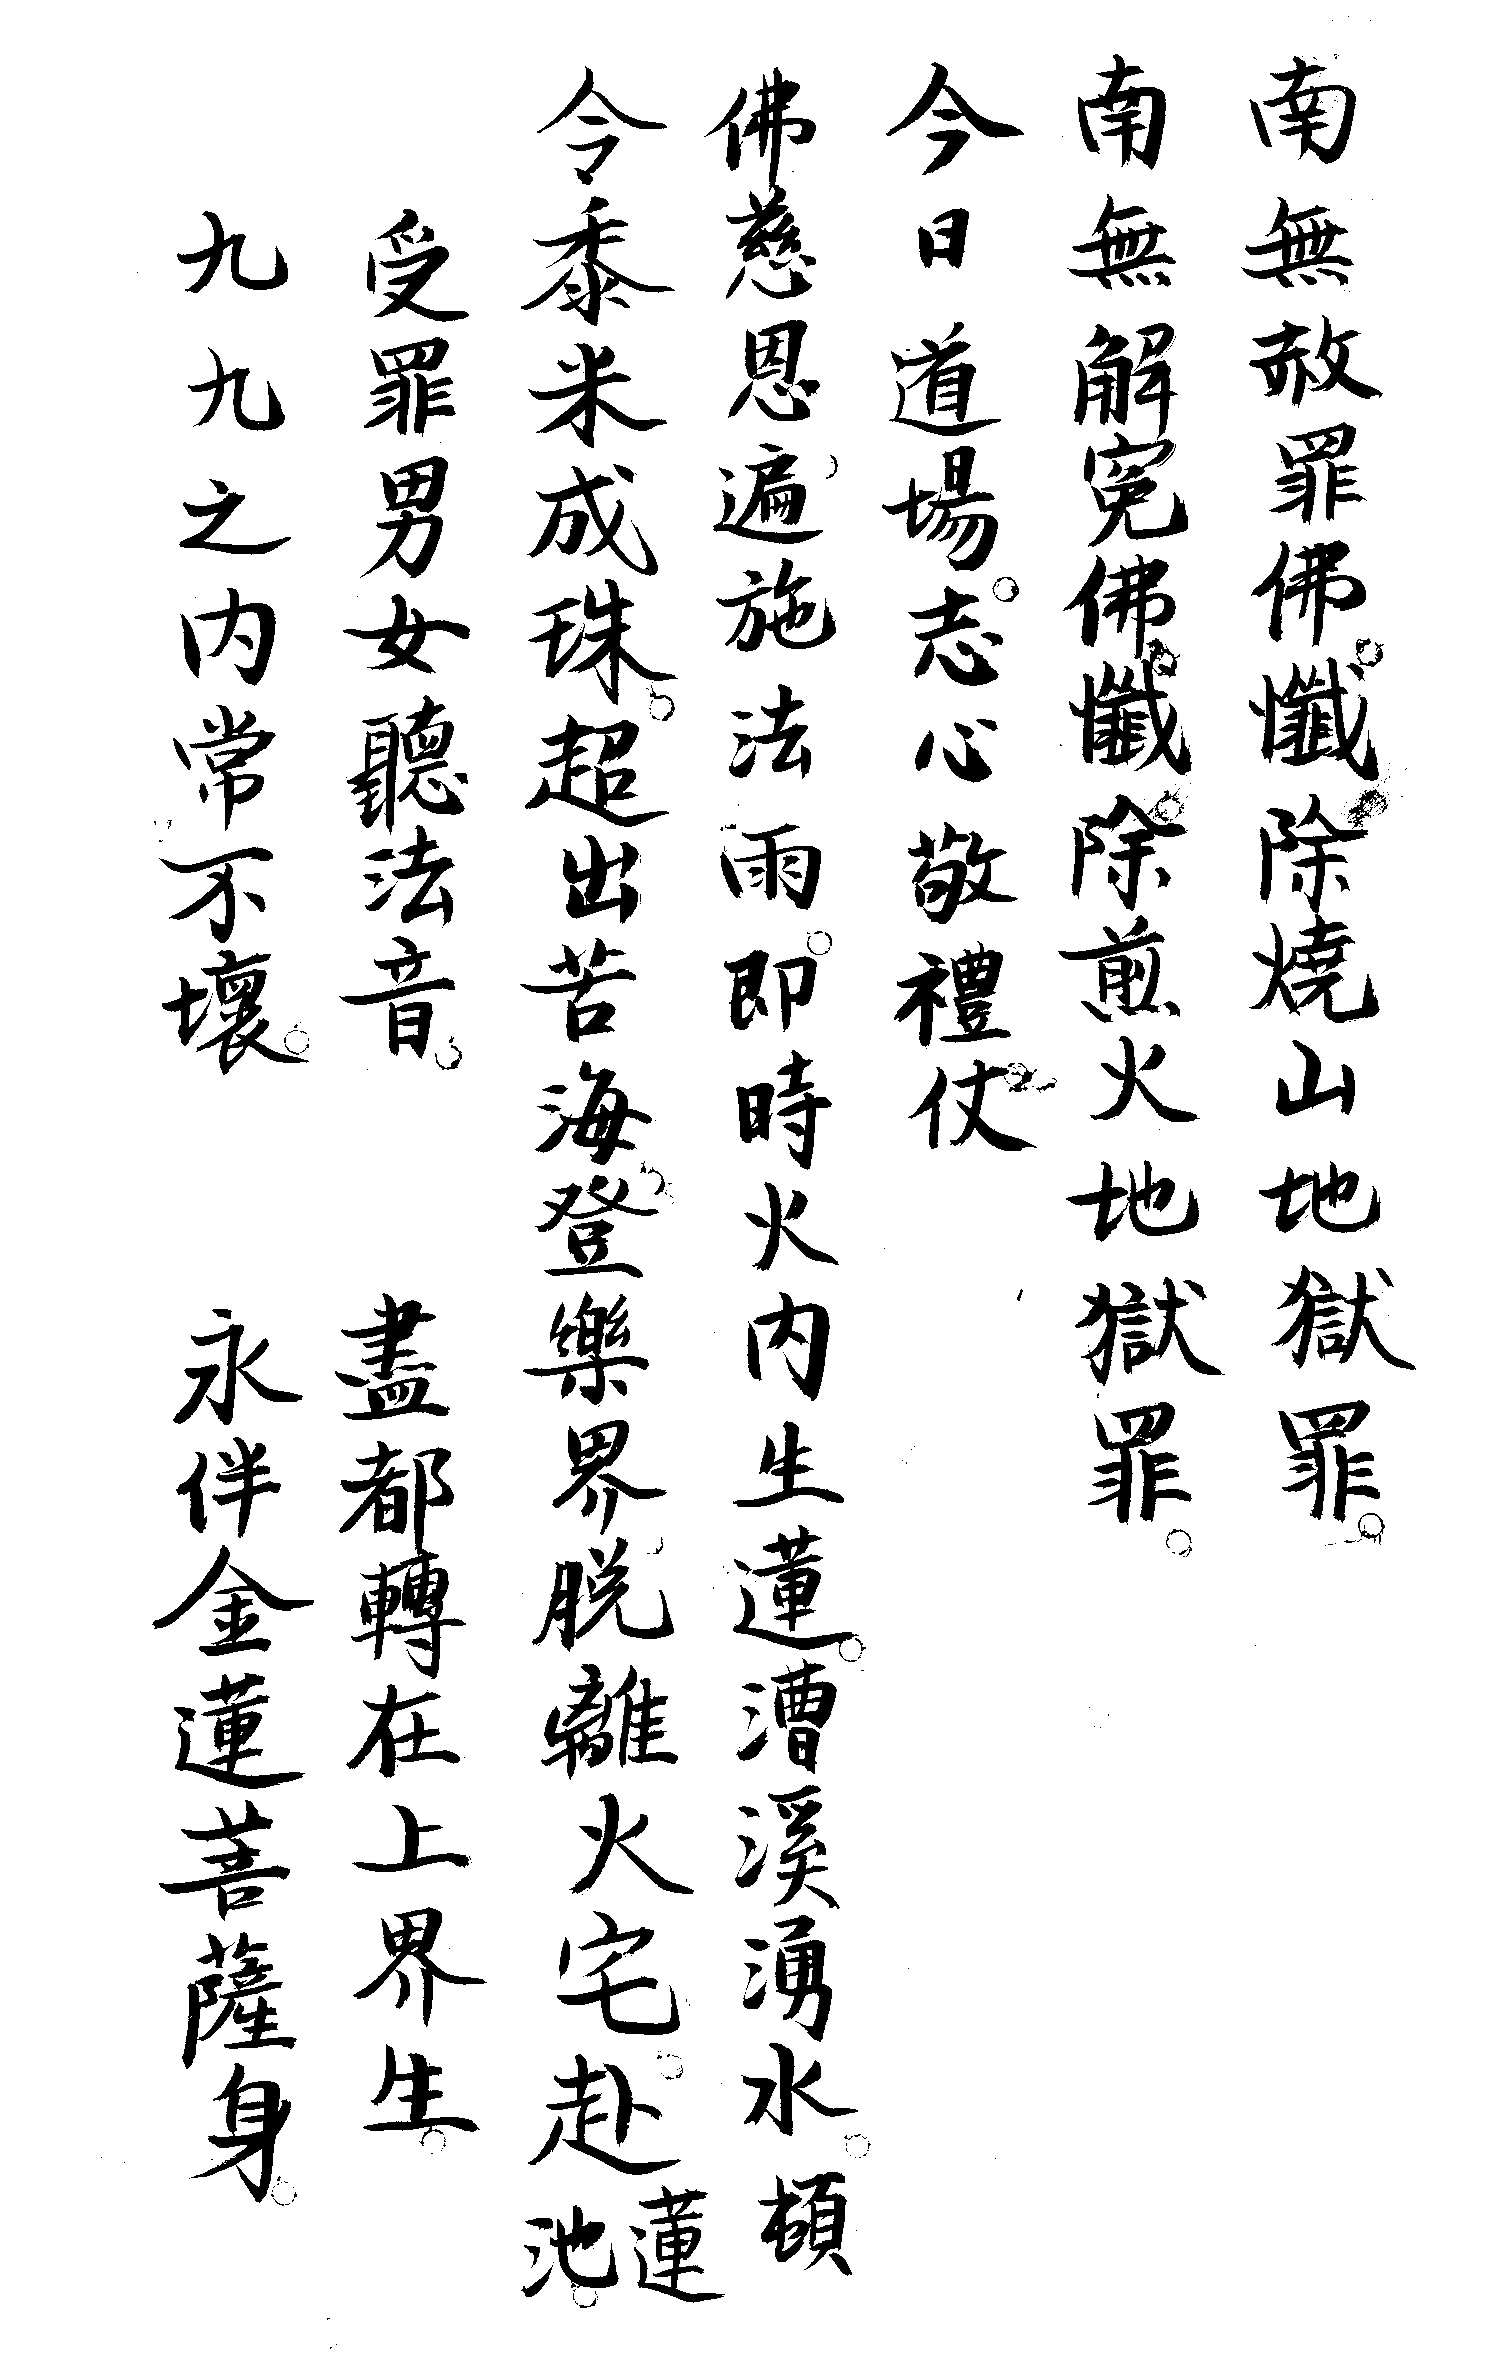 南無赦罪佛懺除燒山地獄罪
南無解冤佛懺除煎火地獄罪
今日道場志心敬禮仗
佛慈恩遍施法雨即時火內生蓮漕溪湧水頓
令黍米成珠超出苦海登樂界脫離火宅赴蓮池
受罪男女聽法音　盡都轉在上界生
九九之內常不壞　永伴金蓮菩薩身